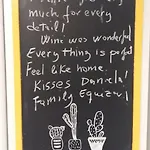 much for every
detail!
Wine was wonderful
Everything is perfect
Feel like home.
Kisses Daniela!
Family